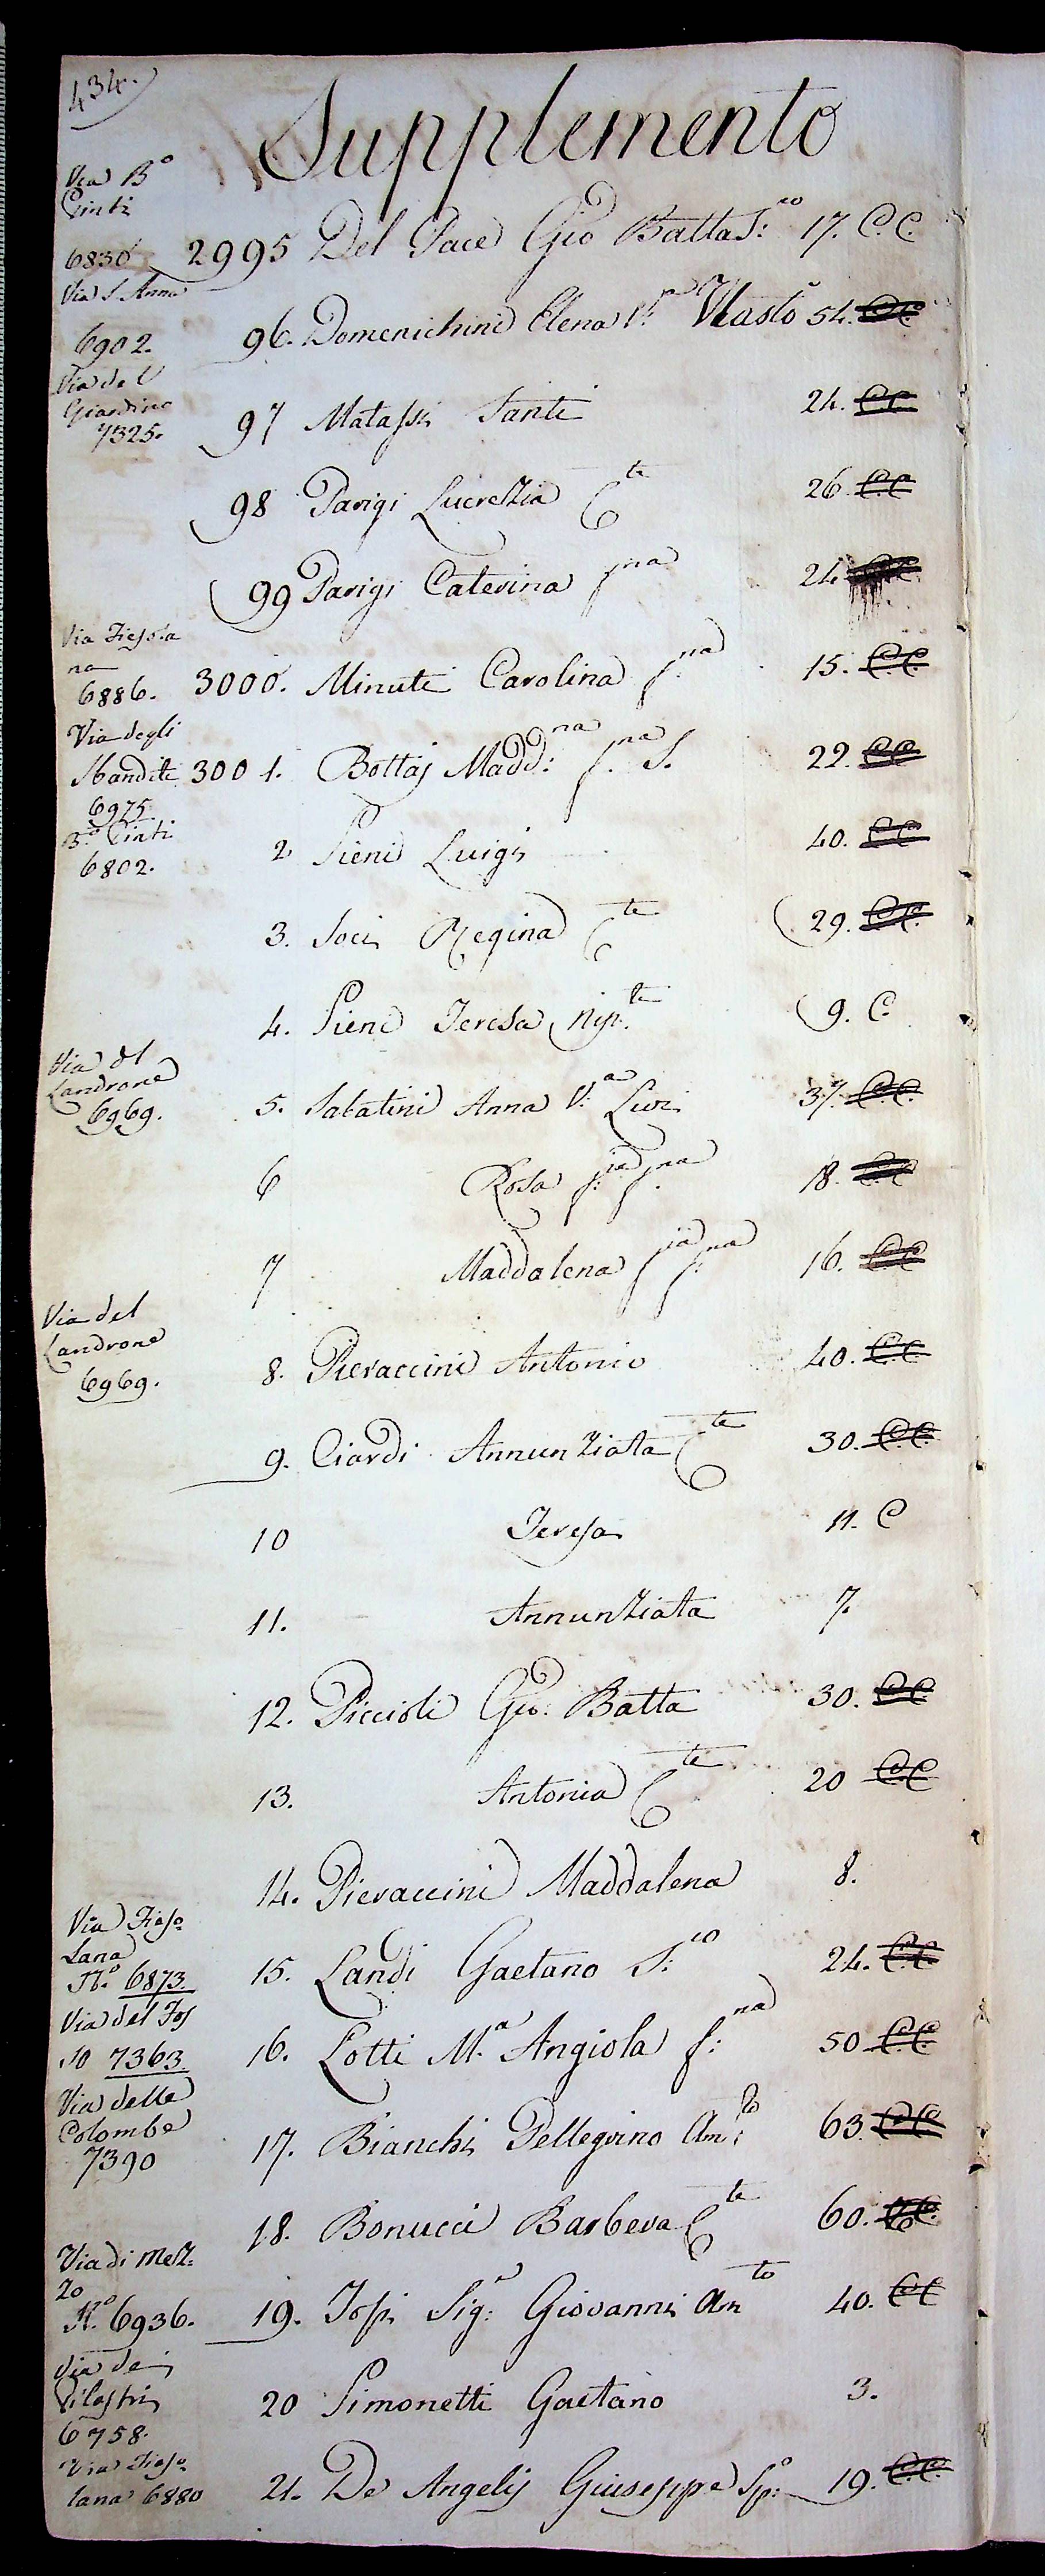 434.
Supplemento
Via B.o
Pinti
6830 2995 Del Pace Gio Batta S:co 17. C.C.
Via S Anna
6902. 96. Domenichini Elena V:a 54. C.C.
Via del
Giardino
7325. 97 Matassi Santi 24. C.C.
98 Parigi Lucrezia C.te 26. C.C.
99 Parigi Caterina f.na 24. C.C.
Via Fiesola
na
6886. 3000. Minuti Carolina f.na 15. C.C.
Via degli
Sbanditi 3001. Bottaj Madd:na f.na S. 22. C.C.
6975
B.o Pinti
6802. 2 Pieni Luigi 40. C.C.
3. Soci Regina C.te 29. C.C.
4. Pieni Teresa Nip.te 9. C.
Via del
Landrone
6969. 5. Salatini Anna V.a Livi 37. C.C.
6 Rosa f:ia f.na 18. C.C.
7 Maddalena f.ia f.na 16. C.C.
Via del
Landrone
6969. 8. Pieraccini Antonio 40. C.C.
9. Ciardi Annunziata C.te 30. C.C.
10 Teresa 11. C
11. Annunziata 7.
12. Piccioli Gio: Batta 30. C.C.
13. Antonia C.te 20 C.C.
14. Pieraccini Maddalena 8.
Via Fieso
Lana
N.o 6873. 15. Landi Gaetano S:co 24. C.C.
Via del Fos
so 7363. 16. Lotti M.a Angiola f:na 50 C.C.
Via delle
Colombe
7390 17. Bianchi Pellegrino Am:to 63. C.C.
18. Bonucci Barbera C.te 60. C.C.
Via di Mez
zo
N.o 6936. 19. Tosi Sig:r Giovanni Am.to 40. C.C.
Via dei
Pilastri
6758. 20 Simonetti Gaetano 3.
Via Fieso
lana 6880 21. De Angelis Giuseppe Sp:o 19. C.C.